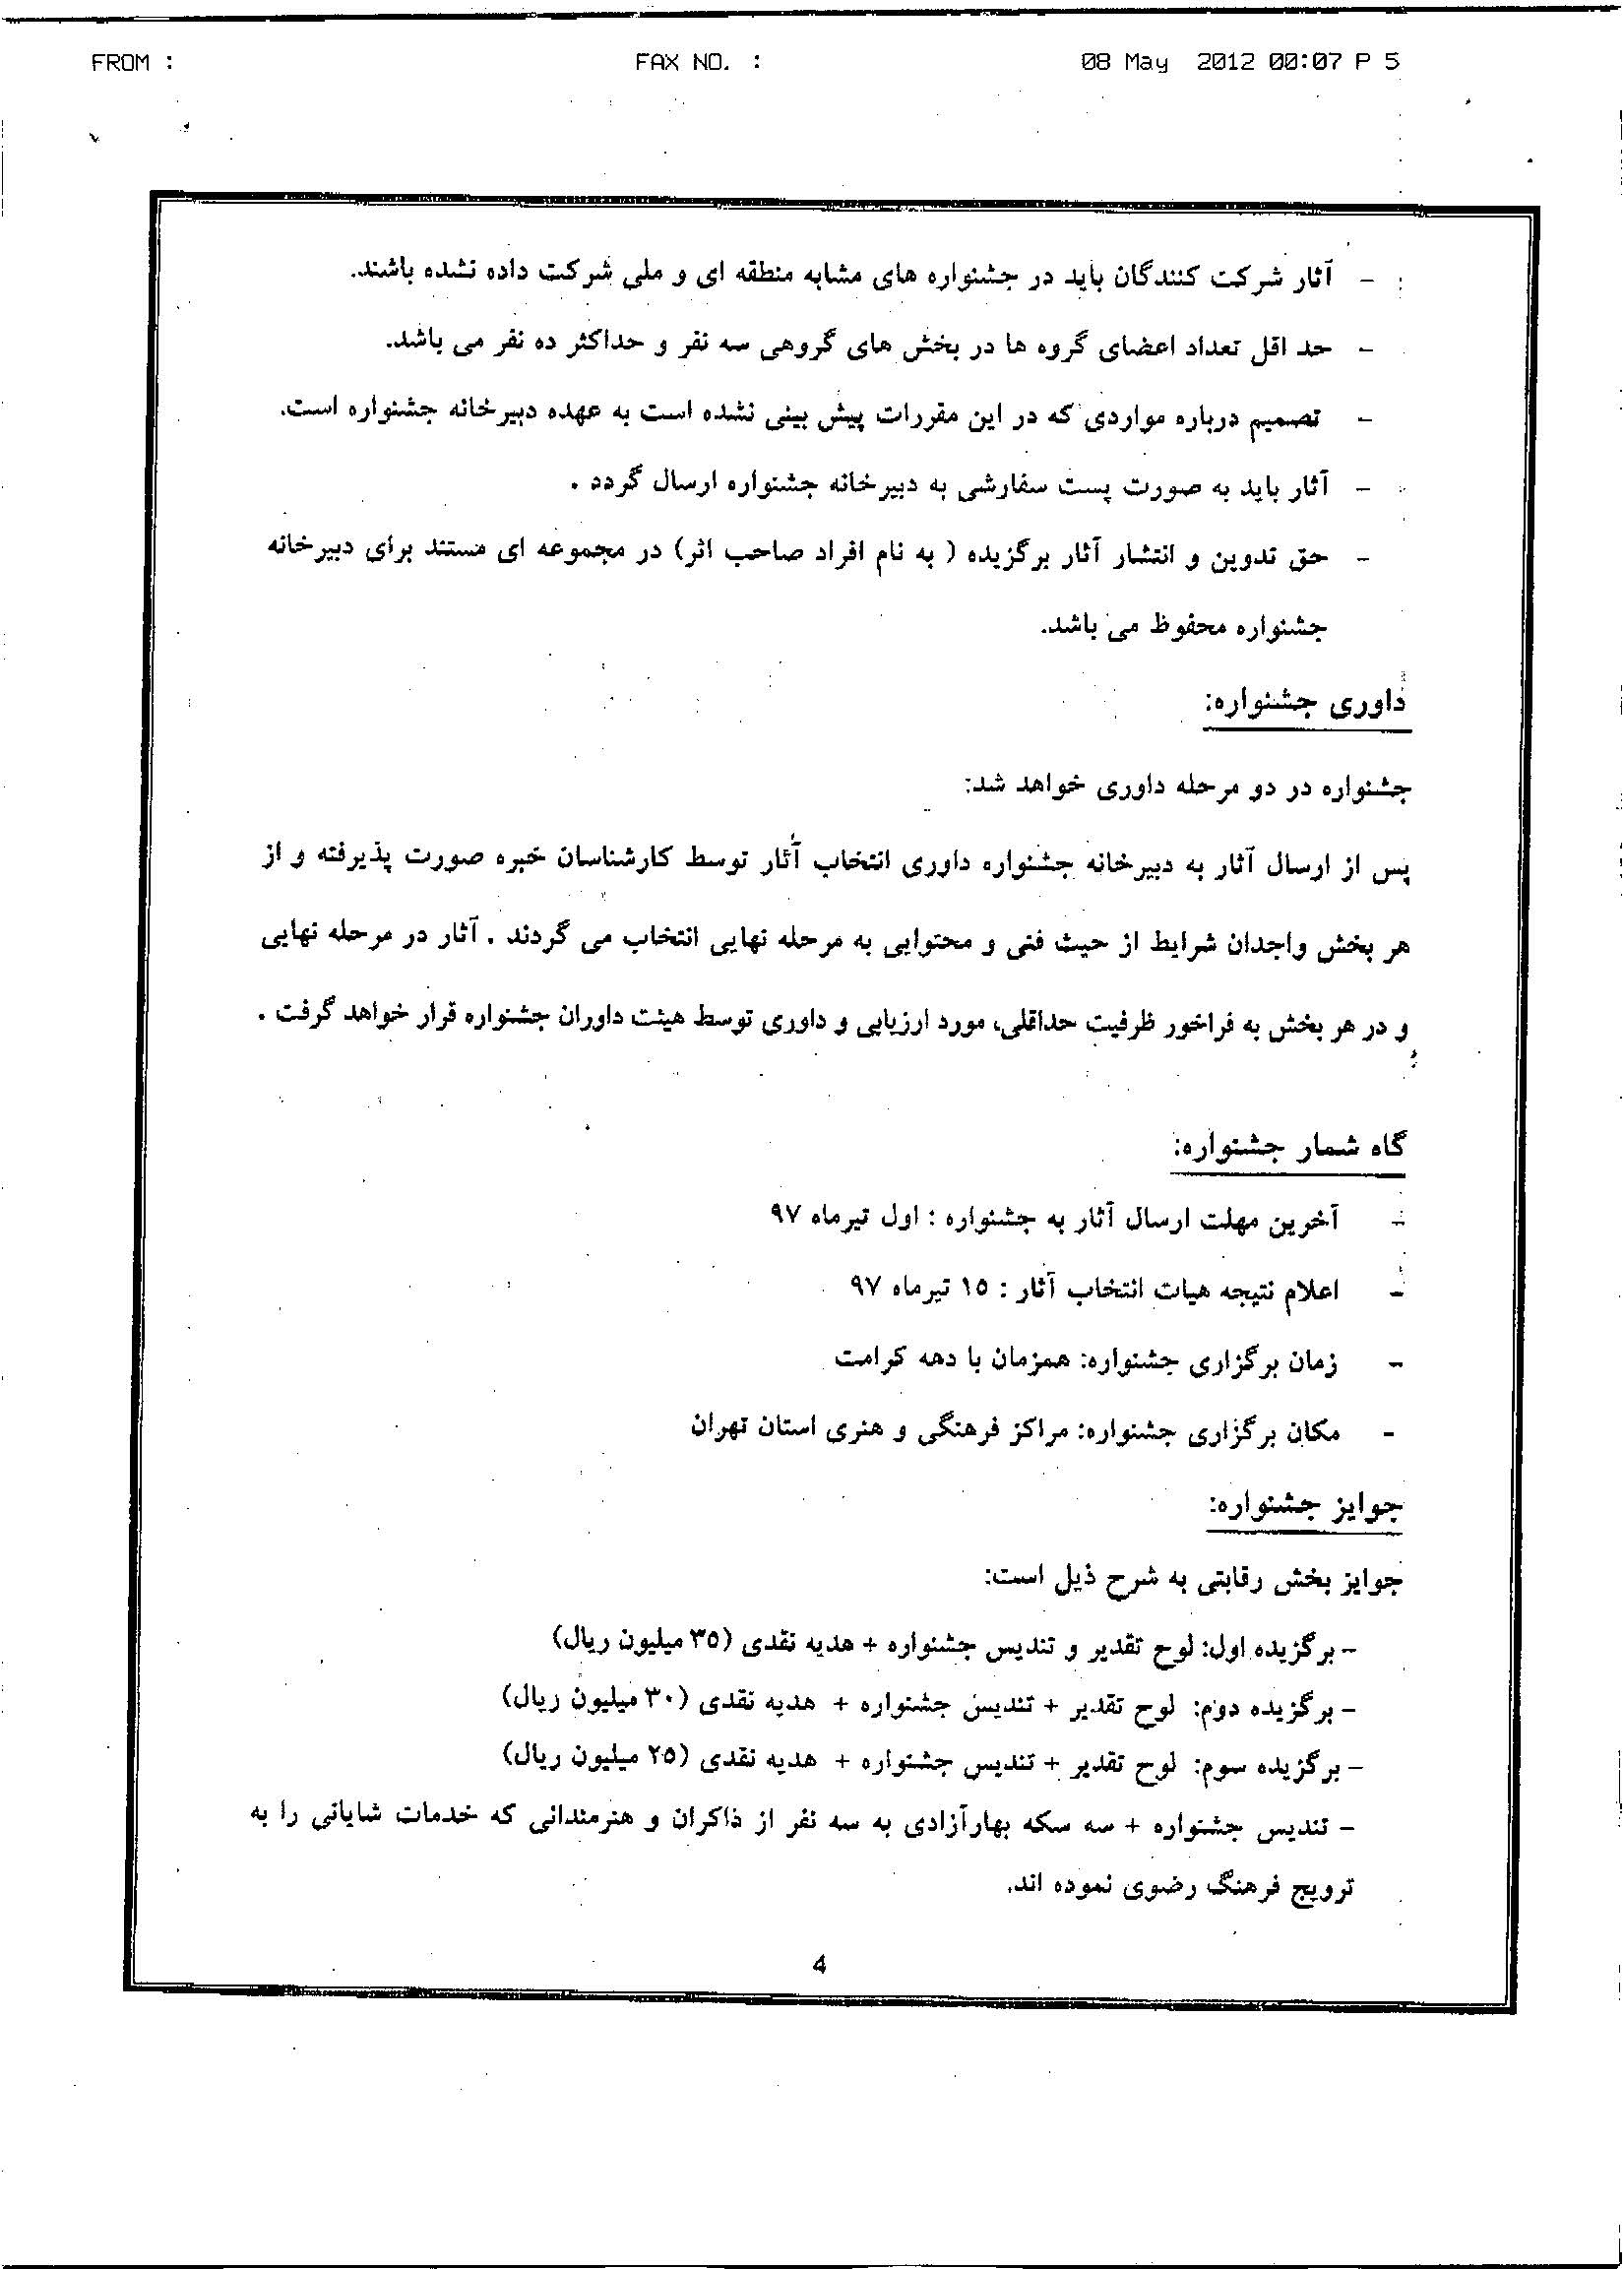 FROM : FAX NO. : 08 May 2012 00:07 P 5
- آثار شرکت کنندگان باید در جشنواره های مشابه منطقه ای و ملی شرکت داده نشده باشند.
- حد اقل تعداد اعضای گروه ها در بخش های گروهی سه نفر و حداکثر ده نفر می باشد.
- تصمیم درباره مواردی که در این مقررات پیش بینی نشده است به عهده دبیرخانه جشنواره است.
- آثار باید به صورت پست سفارشی به دبیرخانه جشنواره ارسال گردد .
- حق تدوین و انتشار آثار برگزیده ( به نام افراد صاحب اثر) در مجموعه ای مستند برای دبیرخانه
جشنواره محفوظ می باشد.
داوری جشنواره:
جشنواره در دو مرحله داوری خواهد شد:
پس از ارسال آثار به دبیرخانه جشنواره داوری انتخاب آثار توسط کارشناسان خبره صورت پذیرفته و از
هر بخش واجدان شرایط از حیث فنی و محتوایی به مرحله نهایی انتخاب می گردند . آثار در مرحله نهایی
و در هر بخش به فراخور ظرفیت حداقلی، مورد ارزیابی و داوری توسط هیئت داوران جشنواره قرار خواهد گرفت .
گاه شمار جشنواره:
- آخرین مهلت ارسال آثار به جشنواره : اول تیرماه ۹۷
- اعلام نتیجه هیات انتخاب آثار : ۱۵ تیرماه ۹۷
- زمان برگزاری جشنواره: همزمان با دهه کرامت
- مکان برگزاری جشنواره: مراکز فرهنگی و هنری استان تهران
جوایز جشنواره:
جوایز بخش رقابتی به شرح ذیل است:
- برگزیده اول: لوح تقدیر و تندیس جشنواره + هدیه نقدی (۳۵ میلیون ریال)
- برگزیده دوم: لوح تقدیر + تندیس جشنواره + هدیه نقدی (۳۰ میلیون ریال)
- برگزیده سوم: لوح تقدیر + تندیس جشنواره + هدیه نقدی (۲۵ میلیون ریال)
- تندیس جشنواره + سه سکه بهارآزادی به سه نفر از ذاکران و هنرمندانی که خدمات شایانی را به
ترویج فرهنگ رضوی نموده اند.
4